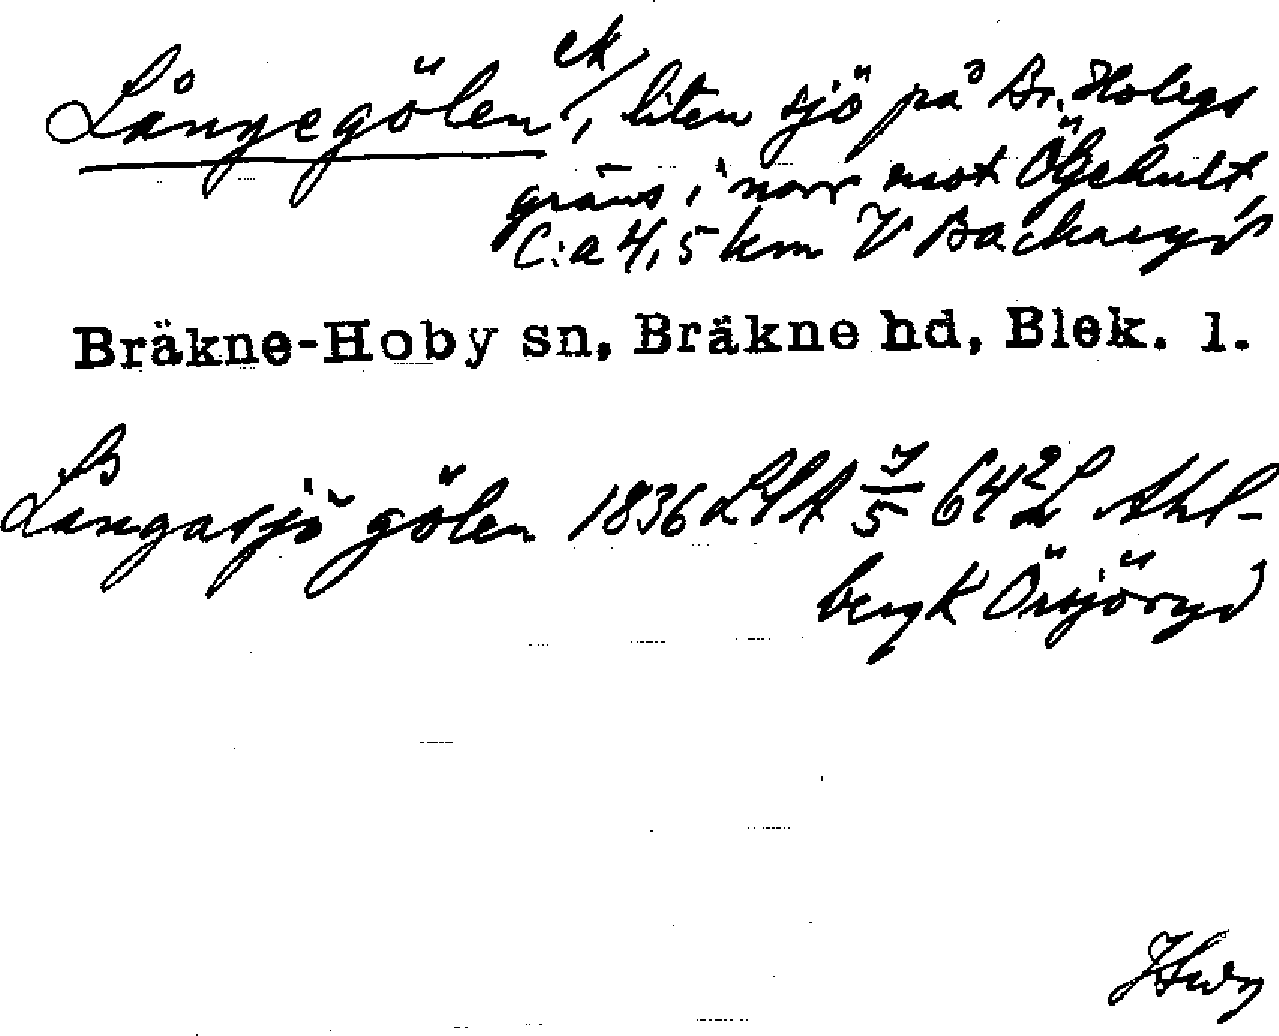 Långegölen ek/, liten sjö på Br. Hobys
gräns i norr mot Öljehult
C:a 4,5 km V Backaryd
Bräkne-Hoby sn, Bräkne hd, Blek. l.
Långasjö gölen 1836 LSA 7/5 64² L Ahl-
berg K Örsjöryd